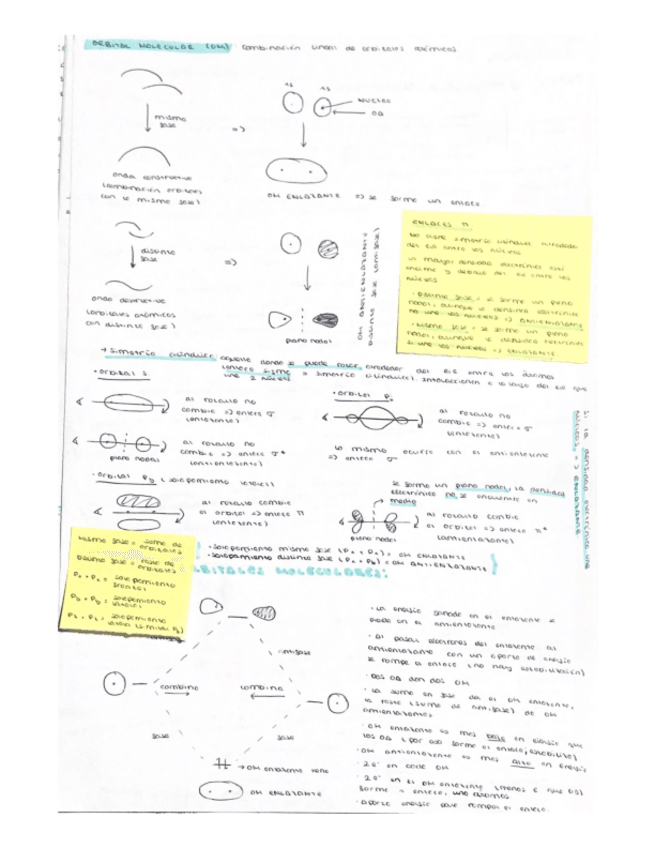 ORBITAL MOLECULAR (OM) combinación lineal de orbitales atómicos.
1s 1s
mismo
fase
=)
NÚCLEO
OA
onda constructiva
(combinación orbitales
con la misma fase)
OM ENLAZANTE => se forma un enlace
distinta
fase
=)
onda destructiva
(orbitales atómicos
con distinta fase)
plano nodal
OM ANTIENLAZANTE
DISTINTA FASE (ANTIFASE)
ENLACES π
No tiene simetría cilíndrica alrededor
del eje entre los núcleos
La mayor densidad electrónica está
encima y debajo del eje entre los
núcleos
· Distinta fase = se forma un plano
nodal,
no une los núcleos => ANTIENLAZANTE
· Misma fase = se forma un plano
nodal,
si une los núcleos => ENLAZANTE.
→ Simetría cilíndrica: aquella donde se puede rotar alrededor del eje entre los átomos
· orbital s.
al rotarlo no
cambia => enlace σ
(enlazante)
al rotarlo no
cambia => enlace σ*
(antienlazante)
plano nodal
· orbital p
al rotarlo no
cambia => enlace σ
(enlazante)
lo mismo ocurre con el antienlazante
=> enlace σ
· orbital py (solapamiento lateral)
al rotarlo cambia
el orbital => enlace π
(enlazante)
se forma un plano nodal, la densidad
electrónica no se encuentra en
medio
al rotarlo cambia
el orbital => enlace π*
(antienlazante)
plano nodal
si la densidad electrónica une
núcleos => ENLAZANTE
Misma fase = suma de
orbitales
Distinta fase = resta de
orbitales
Px + Px = solapamiento
frontal
Py + Py = solapamiento
lateral
Pz + Pz = solapamiento
· Solapamiento misma fase (Px + Px) = OM ENLAZANTE
· Solapamiento distinta fase (Px + Px) = OM ANTIENLAZANTE
ORBITALES MOLECULARES:
antifase
combina
combina
fase
fase
→ OM enlazante
OM ENLAZANTE
· La energía ganada en el enlazante se
pierde en el antienlazante
· Al pasar electrones del enlazante al
antienlazante con un aporte de energía
se rompe el enlace (no hay estabilización)
· Dos OA dan dos OM
· La suma en fase da el OM enlazante,
la resta (suma de antifase) da OM
antienlazante.
· OM enlazante es más bajo en energía que
los OA (por eso forma el enlace, estabilidad)
· OM antienlazante es más alto en energía
· 2e⁻ en cada OM
· 2e⁻ en el OM enlazante
forma 1 enlace, une átomos
· aportar energía para romper el enlace.